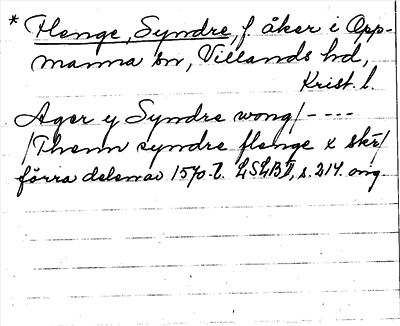 * Flenge, Syndre, f. åker i Opp-
manna sn, Villands hd,
Krist. l.
Ager y Syndre wong/ - - - -
/Thenn syndre flenge x skr/
förra delen av 1570-t. LSLB II, s. 214. ong.